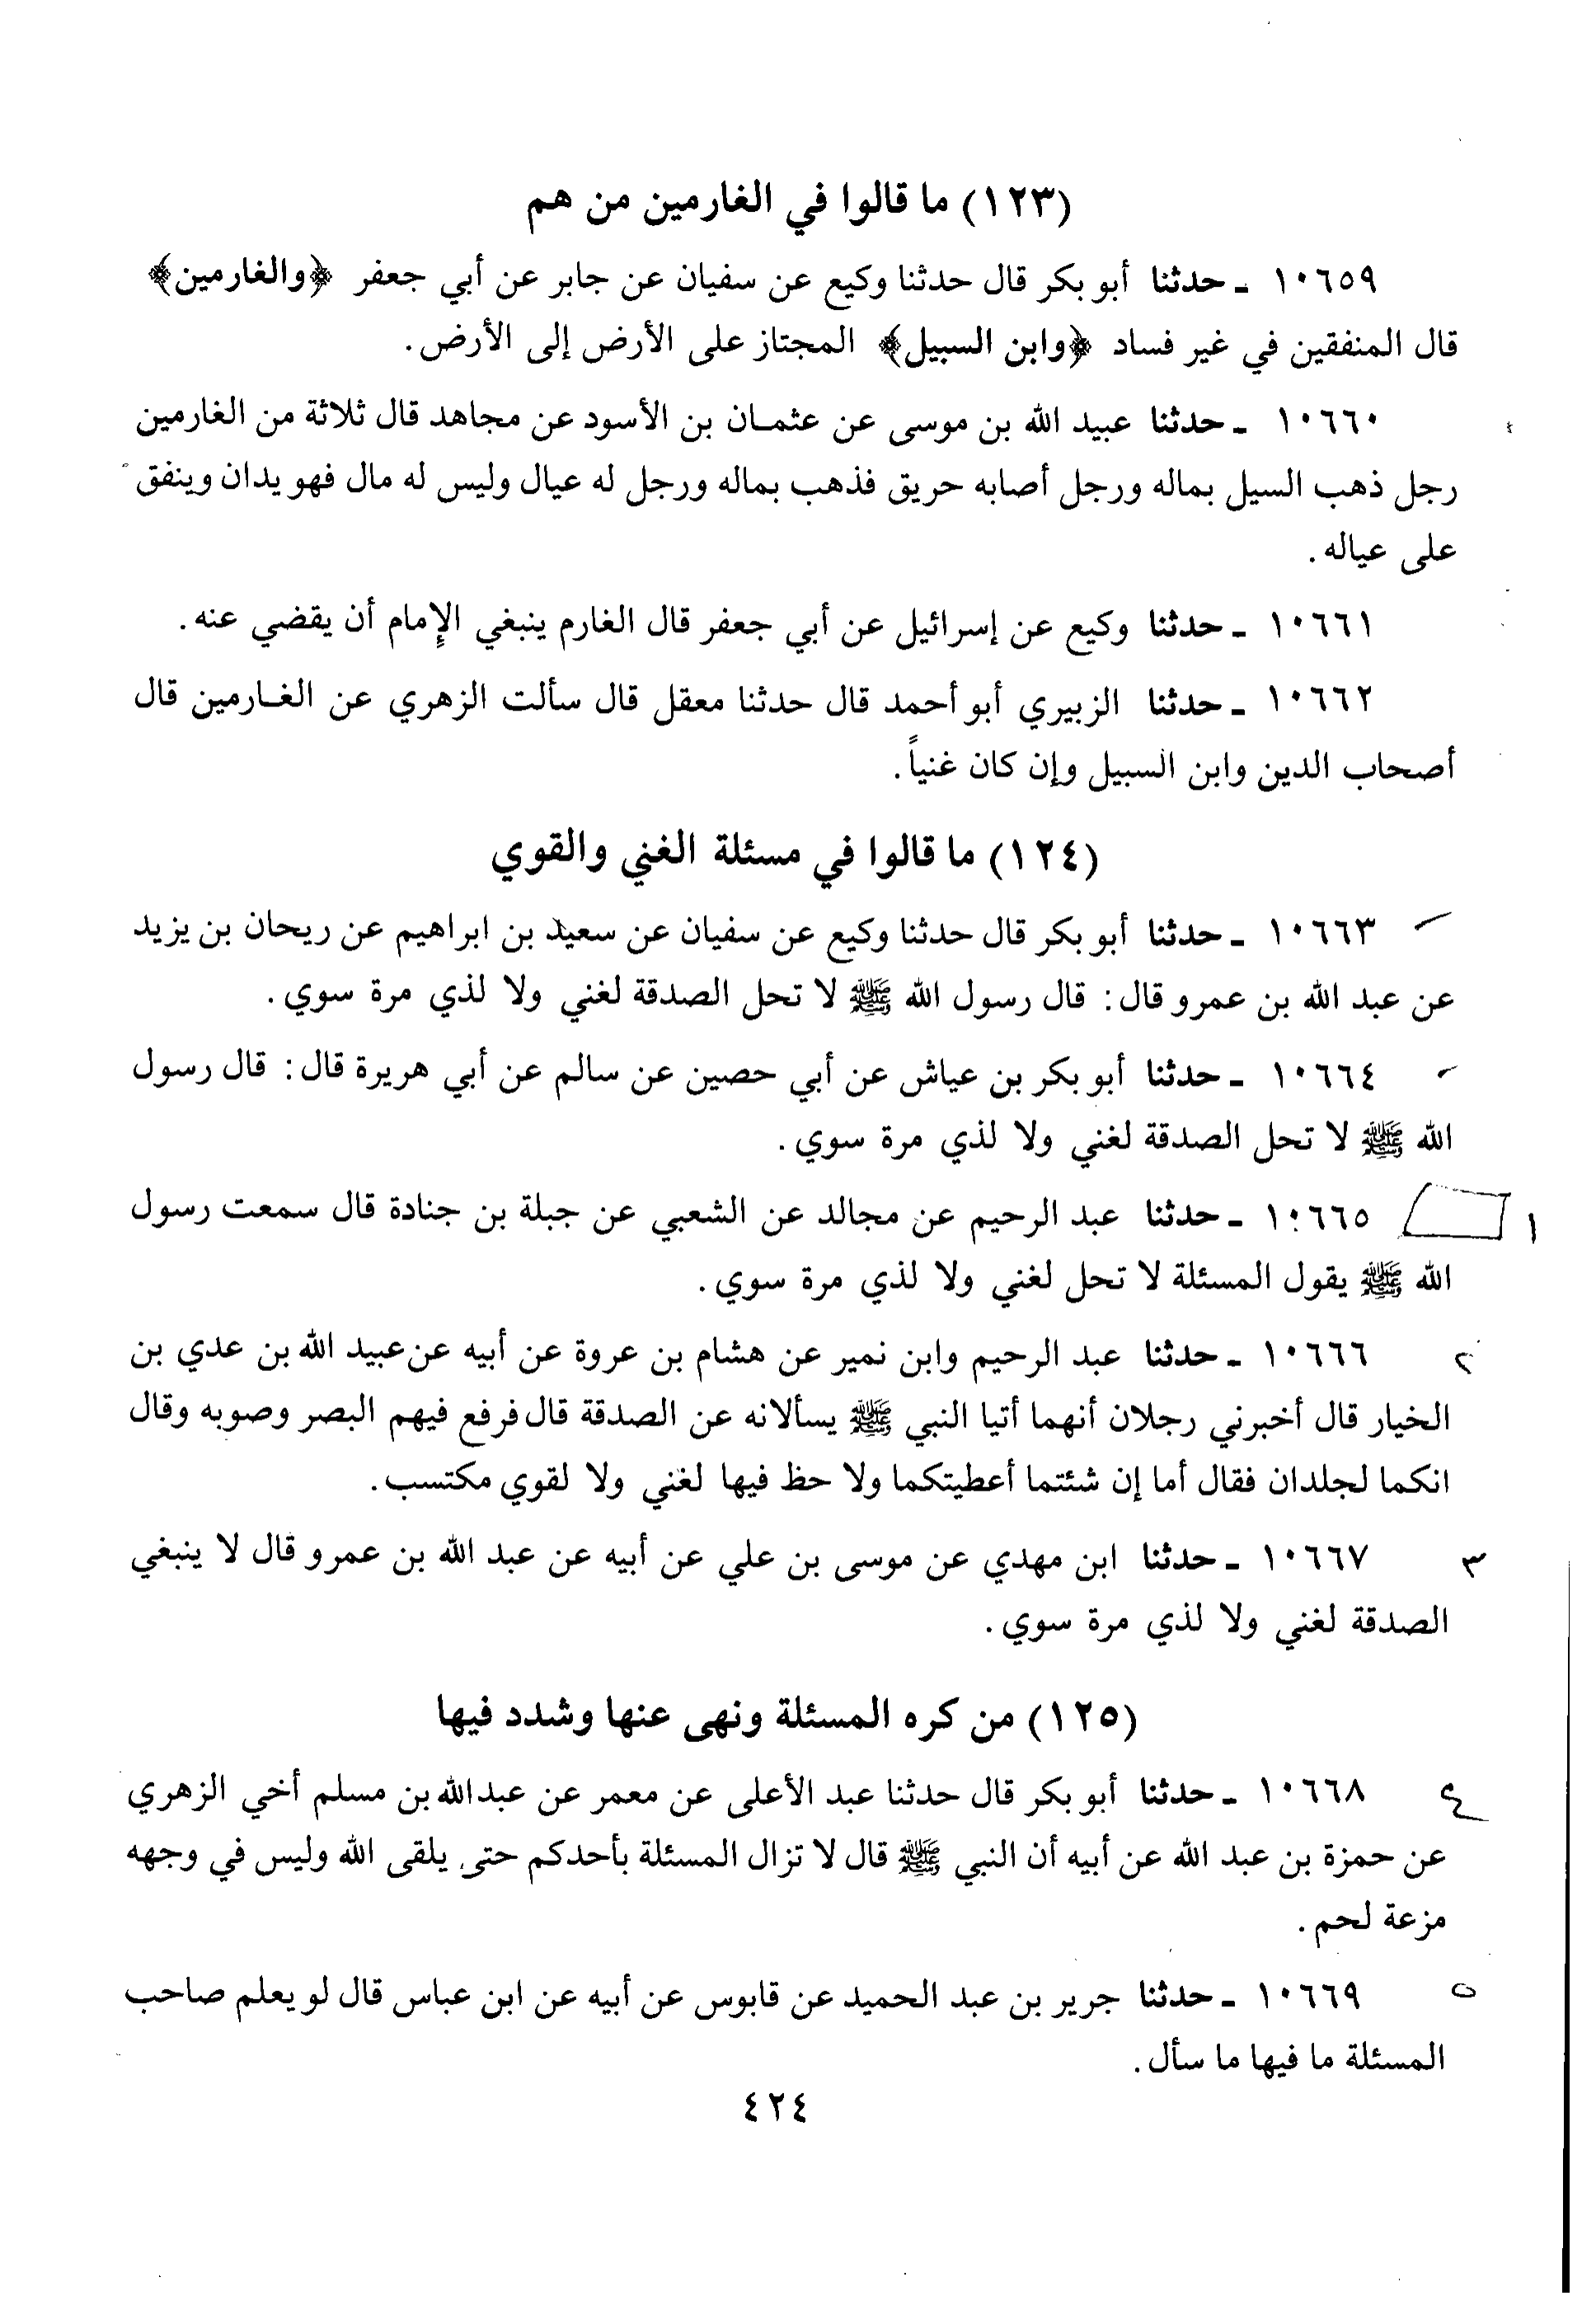 (١٢٣) ما قالوا في الغارمين من هم
١٠٦٥٩ ـ حدثنا أبو بكر قال حدثنا وكيع عن سفيان عن جابر عن أبي جعفر ﴿والغارمين﴾
قال المنفقين في غير فساد ﴿وابن السبيل﴾ المجتاز على الأرض إلى الأرض.
١٠٦٦٠ ـ حدثنا عبيد الله بن موسى عن عثمـان بن الأسود عن مجاهد قال ثلاثة من الغارمين
رجل ذهب السيل بماله ورجل أصابه حريق فذهب بماله ورجل له عيال وليس له مال فهو يدان وينفق
على عياله.
١٠٦٦١ ـ حدثنا وكيع عن إسرائيل عن أبي جعفر قال الغارم ينبغي الإمام أن يقضي عنه.
١٠٦٦٢ ـ حدثنا الزبيري أبو أحمد قال حدثنا معقل قال سألت الزهري عن الغـارمين قال
أصحاب الدين وابن السبيل وإن كان غنياً.
(١٢٤) ما قالوا في مسئلة الغني والقوي
١٠٦٦٣ ـ حدثنا أبو بكر قال حدثنا وكيع عن سفيان عن سعيد بن ابراهيم عن ريحان بن يزيد
عن عبد الله بن عمرو قال: قال رسول الله ﷺ لا تحل الصدقة لغني ولا لذي مرة سوي.
١٠٦٦٤ ـ حدثنا أبو بكر بن عياش عن أبي حصين عن سالم عن أبي هريرة قال: قال رسول
الله ﷺ لا تحل الصدقة لغني ولا لذي مرة سوي.
١ ١٠٦٦٥ ـ حدثنا عبد الرحيم عن مجالد عن الشعبي عن جبلة بن جنادة قال سمعت رسول
الله ﷺ يقول المسئلة لا تحل لغني ولا لذي مرة سوي.
٢ ١٠٦٦٦ ـ حدثنا عبد الرحيم وابن نمير عن هشام بن عروة عن أبيه عن عبيد الله بن عدي بن
الخيار قال أخبرني رجلان أنهما أتيا النبي ﷺ يسألانه عن الصدقة قال فرفع فيهم البصر وصوبه وقال
انكما لجلدان فقال أما إن شئتما أعطيتكما ولا حظ فيها لغني ولا لقوي مكتسب.
٣ ١٠٦٦٧ ـ حدثنا ابن مهدي عن موسى بن علي عن أبيه عن عبد الله بن عمرو قال لا ينبغي
الصدقة لغني ولا لذي مرة سوي.
(١٢٥) من كره المسئلة ونهى عنها وشدد فيها
٤ ١٠٦٦٨ ـ حدثنا أبو بكر قال حدثنا عبد الأعلى عن معمر عن عبدالله بن مسلم أخي الزهري
عن حمزة بن عبد الله عن أبيه أن النبي ﷺ قال لا تزال المسئلة بأحدكم حتى يلقى الله وليس في وجهه
مزعة لحم.
٥ ١٠٦٦٩ ـ حدثنا جرير بن عبد الحميد عن قابوس عن أبيه عن ابن عباس قال لو يعلم صاحب
المسئلة ما فيها ما سأل.
٤٢٤